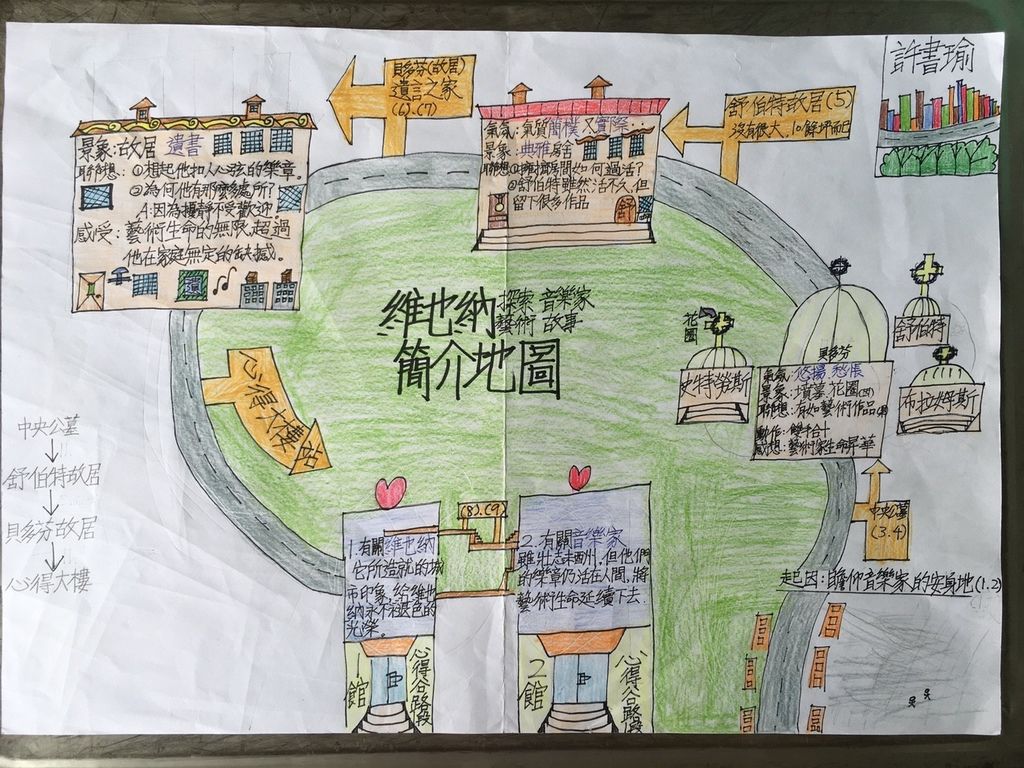 許書瑜
貝多芬(故居)
遺言之家
(6).(7)
舒伯特故居(5)
沒有很大、10餘坪而已
景象:故居 遺書
聯想:①想起他扣人心弦的樂章。
②為何他有那麼多處所?
A:因為擾靜不受歡迎。
感受:藝術生命的無限,超過
他在家庭無定的缺憾。
氣氛:氣質簡樸又實際
景象:典雅房舍
②舒伯特雖然活不久,但
留下很多作品
舒
維也納
探索 音樂家
藝術 故事
簡介地圖
花圈
史特勞斯
舒伯特
布拉姆斯
貝多芬
氣氛:悠揚 愁悵
景象:墳墓 花圈(四)
聯想:有如藝術作品
動作:雙手合十
感想:藝術家生命昇華
中央公墓
(3.4)
起因:瞻仰音樂家的安身地(1.2)
心得大樓站
中央公墓
舒伯特故居
貝多芬故居
心得大樓
(8).(9)
1.有關維也納
它所造就的城
市印象,給維也
納永不褪色的
光榮。
2.有關音樂家
雖壯志未酬,但他們
的樂章仍活在人間,將
藝術生命延續下去.
1館
心得谷路段
2館
心得谷路段